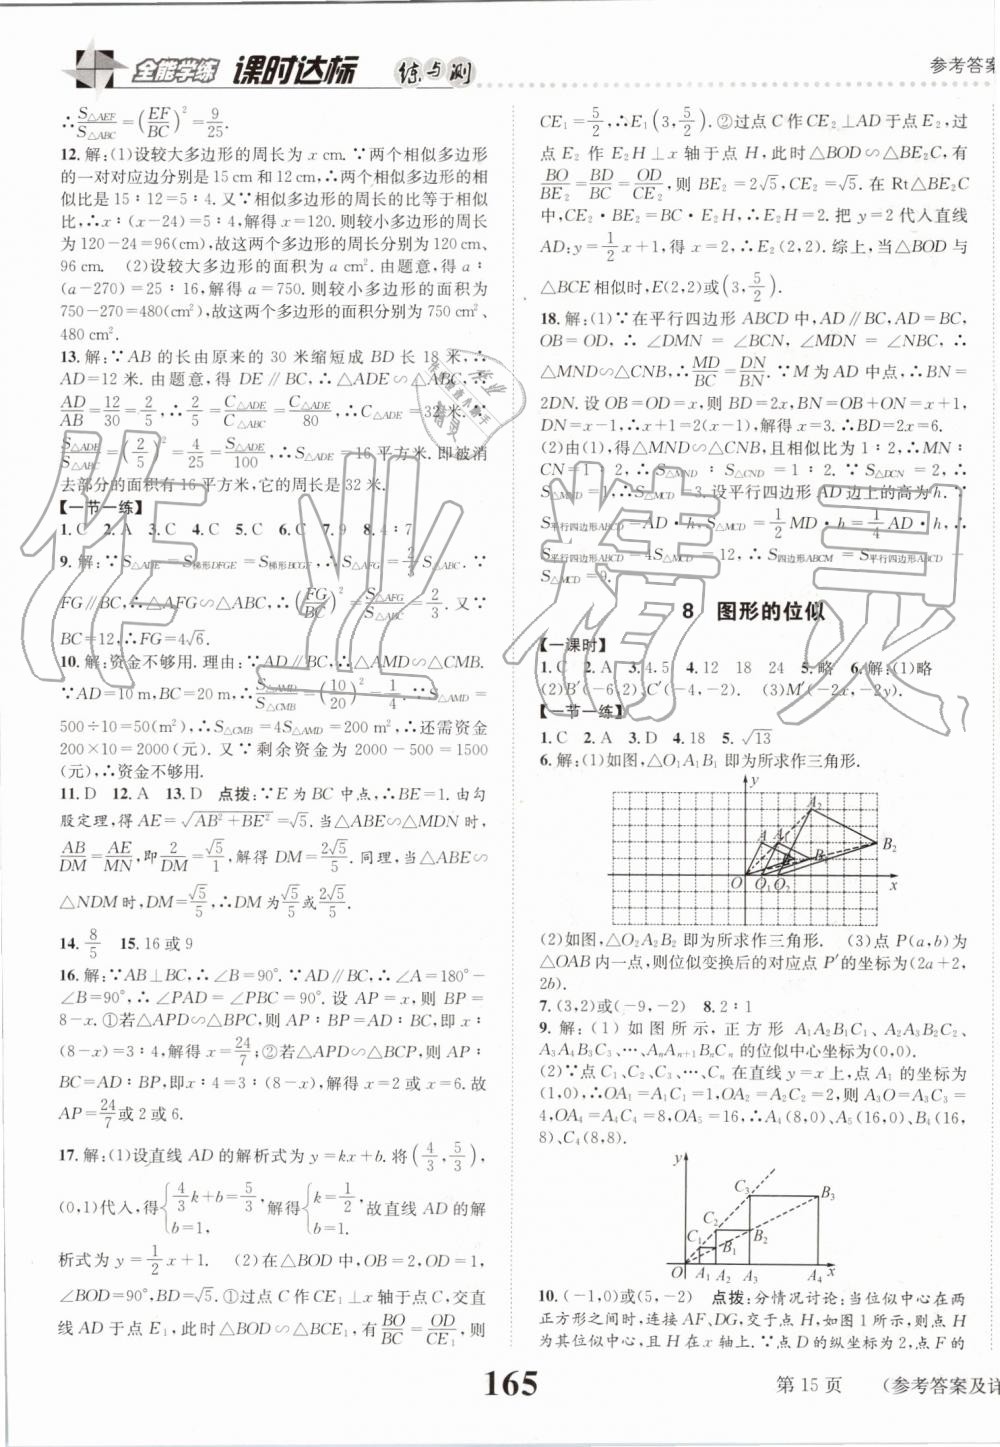 全能学练 课时达标 练与测
参考答案
∴S△AEF/S△ABC=(EF/BC)²=9/25.
12.解:(1)设较大多边形的周长为 x cm.∵两个相似多边形
的一对对应边分别是15 cm和12 cm,∴两个相似多边形的相
似比是15∶12=5∶4.又∵相似多边形的周长的比等于相似
比,∴x∶(x-24)=5∶4,解得x=120.则较小多边形的周长
为120-24=96(cm),故这两个多边形的周长分别为120 cm、
96 cm. (2)设较大多边形的面积为a cm².由题意,得a∶
(a-270)=25∶16,解得a=750.则较小多边形的面积为
750-270=480(cm²),故这两个多边形的面积分别为750 cm²、
480 cm².
13.解:∵AB的长由原来的30米缩短成BD长18米,∴
AD=12米.由题意,得DE∥BC,∴△ADE∽△ABC,∴
AD/AB=12/30=2/5,∴C△ADE/C△ABC=C△ADE/80=2/5,∴C△ADE=32米.∵
S△ADE/S△ABC=(2/5)²=4/25=S△ADE/100,∴S△ADE=16平方米.即被消
去部分的面积有16平方米,它的周长是32米.
【一节一练】
1.C 2.A 3.C 4.C 5.C 6.C 7.9 8.4∶7
9.解:∵S△ADE=S梯形DFGE=S梯形BCGF,∴S△AFG=2/3S△ABC.∵
FG∥BC,∴△AFG∽△ABC,∴(FG/BC)²=S△AFG/S△ABC=2/3.又∵
BC=12,∴FG=4√6.
10.解:资金不够用.理由:∵AD∥BC,∴△AMD∽△CMB.
∵AD=10 m,BC=20 m,∴S△AMD/S△CMB=(10/20)²=1/4.∵S△AMD=
500÷10=50(m²),∴S△CMB=4S△AMD=200 m²,∴还需资金
200×10=2000(元).又∵剩余资金为2000-500=1500
(元),∴资金不够用.
11.D 12.A 13.D 点拨:∵E为BC中点,∴BE=1.由勾
股定理,得AE=√AB²+BE²=√5.当△ABE∽△MDN时,
AB/DM=AE/MN,即2/DM=√5/1,解得DM=2√5/5.同理,当△ABE∽
△NDM时,DM=√5/5,∴DM为√5/5或2√5/5.
14.8/5 15.16或9
16.解:∵AB⊥BC,∴∠B=90°.∵AD∥BC,∴∠A=180°-
∠B=90°,∴∠PAD=∠PBC=90°.设AP=x,则BP=
8-x.①若△APD∽△BPC,则AP∶BP=AD∶BC,即x∶
(8-x)=3∶4,解得x=24/7;②若△APD∽△BCP,则AP∶
BC=AD∶BP,即x∶4=3∶(8-x),解得x=2或x=6.故
AP=24/7或2或6.
17.解:(1)设直线AD的解析式为y=kx+b.将(4/3,5/3),
(0,1)代入,得{4/3k+b=5/3, b=1, 解得{k=1/2, b=1, 故直线AD的解
析式为y=1/2x+1. (2)在△BOD中,OB=2,OD=1,
∠BOD=90°,BD=√5.①过点C作CE₁⊥x轴于点C,交直
线AD于点E₁,此时△BOD∽△BCE₁,有BO/BC=OD/CE₁,则
CE₁=5/2,∴E₁(3,5/2).②过点C作CE₂⊥AD于点E₂,过
点E₂作E₂H⊥x轴于点H,此时△BOD∽△BE₂C,有
BO/BE₂=BD/BC=OD/CE₂,则BE₂=2√5,CE₂=√5.在Rt△BE₂C
中,CE₂·BE₂=BC·E₂H,∴E₂H=2.把y=2代入直线
AD:y=1/2x+1,得x=2,∴E₂(2,2).综上,当△BOD与
△BCE相似时,E(2,2)或(3,5/2).
18.解:(1)∵在平行四边形ABCD中,AD∥BC,AD=BC,
OB=OD,∴∠DMN=∠BCN,∠MDN=∠NBC,∴
△MND∽△CNB,∴MD/BC=DN/BN.∵M为AD中点,∴BN=
2DN.设OB=OD=x,则BD=2x,BN=OB+ON=x+1,
DN=x-1,∴x+1=2(x-1),解得x=3.∴BD=2x=6.
(2)由(1),得△MND∽△CNB,且相似比为1∶2,∴MN∶
CN=1∶2,∴S△MND∶S△CND=1∶2.∵S△DCN=2,∴
S△MND=1,∴S△MCD=3.设平行四边形AD边上的高为h.∵
S平行四边形ABCD=AD·h,S△MCD=1/2MD·h=1/4AD·h,∴
S平行四边形ABCD=4S△MCD=12,∴S四边形ABCM=S平行四边形ABCD-
S△MCD=9.
8 图形的位似
【一课时】
1.C 2.A 3.4.5 4.12 18 24 5.略 6.解:(1)略
(2)B′(-6,2),C′(-4,-2). (3)M′(-2x,-2y).
【一节一练】
1.C 2.A 3.D 4.18 5.√13
6.解:(1)如图,△O₁A₁B₁即为所求作三角形.
y
A₂
A A₁
B B₁
B₂
O O₁ O₂ x
(2)如图,△O₂A₂B₂即为所求作三角形. (3)点P(a,b)为
△OAB内一点,则位似变换后的对应点P′的坐标为(2a+2,
2b).
7.(3,2)或(-9,-2) 8.2∶1
9.解:(1)如图所示,正方形A₁A₂B₁C₁、A₂A₃B₂C₂、
A₃A₄B₃C₃、…、AₙAₙ₊₁BₙCₙ的位似中心坐标为(0,0).
(2)∵点C₁、C₂、C₃、…、Cₙ在直线y=x上,点A₁的坐标为
(1,0),∴OA₁=A₁C₁=1,OA₂=A₂C₂=2,则A₃O=A₃C₃=
4,OA₄=A₄C₄=8,OA₅=16,∴A₄(8,0)、A₅(16,0)、B₄(16,
8)、C₄(8,8).
y
C₃ B₃
C₂ B₂
C₁ B₁
O A₁ A₂ A₃ A₄ x
10.(-1,0)或(5,-2) 点拨:分情况讨论:当位似中心在两
正方形之间时,连接AF、DG,交于点H,如图1所示,则点H
为其位似中心,且H在x轴上.∵点D的纵坐标为2,点F的
165
第15页 (参考答案及详
作业精灵